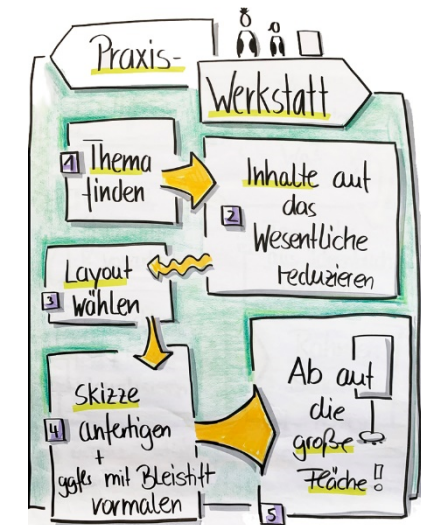 Praxis-
Werkstatt
1 Thema
finden
Inhalte auf
2 das
Wesentliche
reduzieren
Layout
3 wählen
Skizze
4 anfertigen
+
ggfs mit Bleistift
vormalen
Ab auf
die
große
Fläche!
5